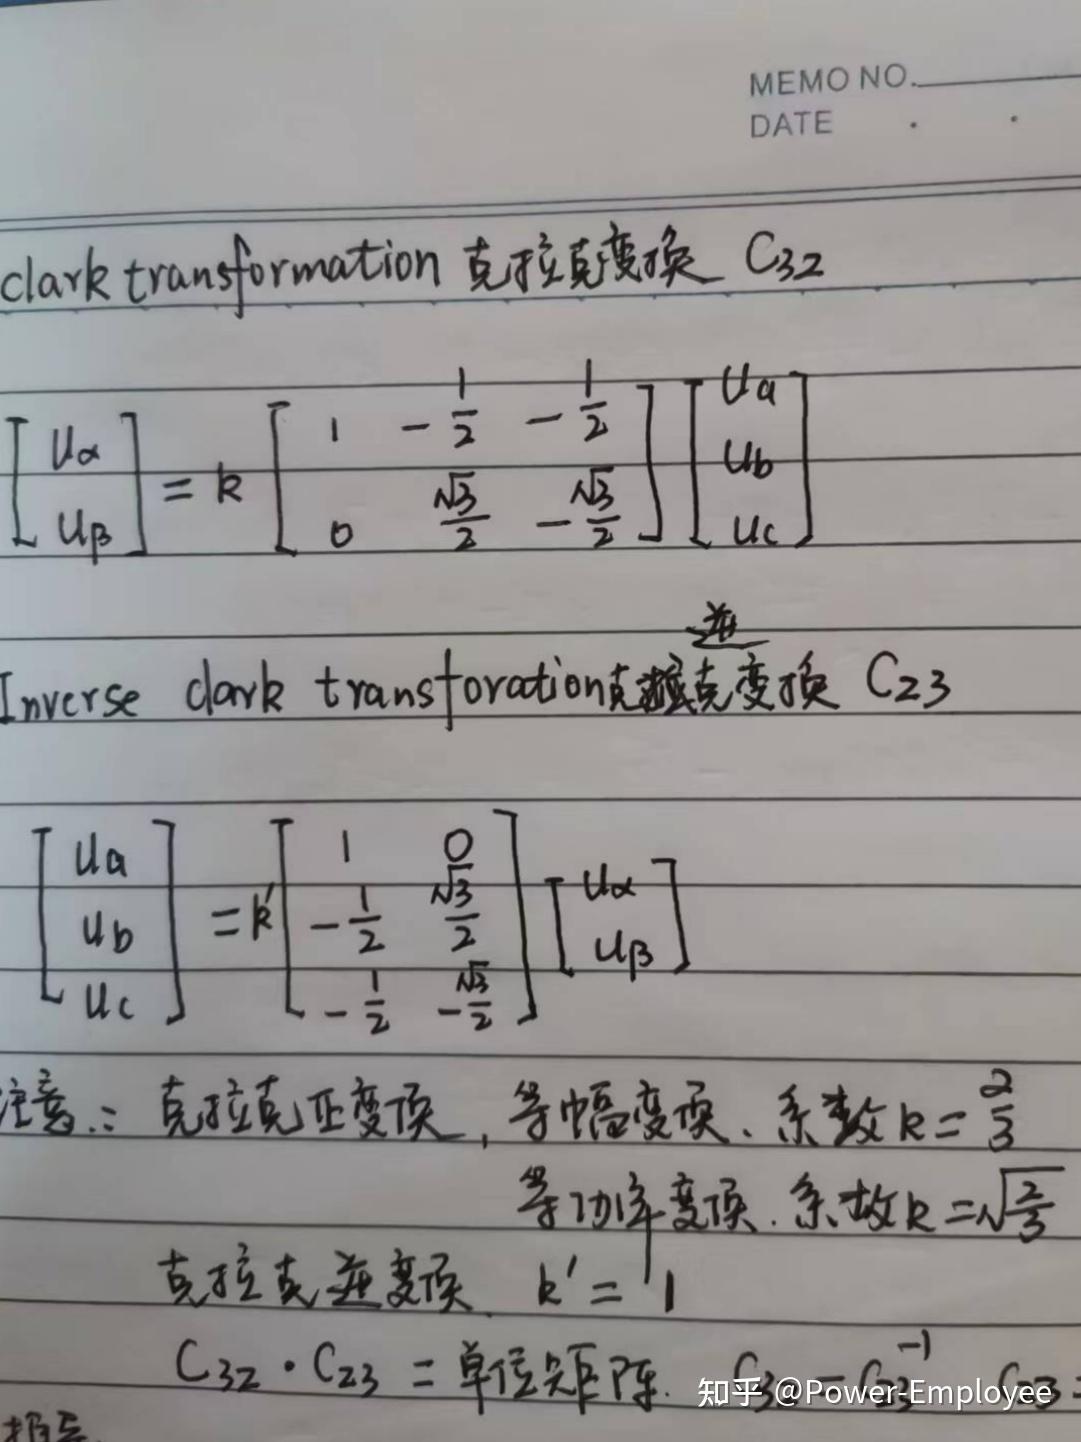 MEMO NO.
DATE . .
clark transformation 克拉克变换 C32
[uα uβ] = k [1 -1/2 -1/2; 0 √3/2 -√3/2] [ua ub uc]
逆
Inverse clark transforation克拉克变换 C23
[ua ub uc] = k' [1 0; -1/2 √3/2; -1/2 -√3/2] [uα uβ]
注意:克拉克正变换,等幅变换、系数k=2/3
等功率变换.系数k=√(2/3)
克拉克逆变换 k'=1
C32·C23=单位矩阵.
知乎 @Power-Employee